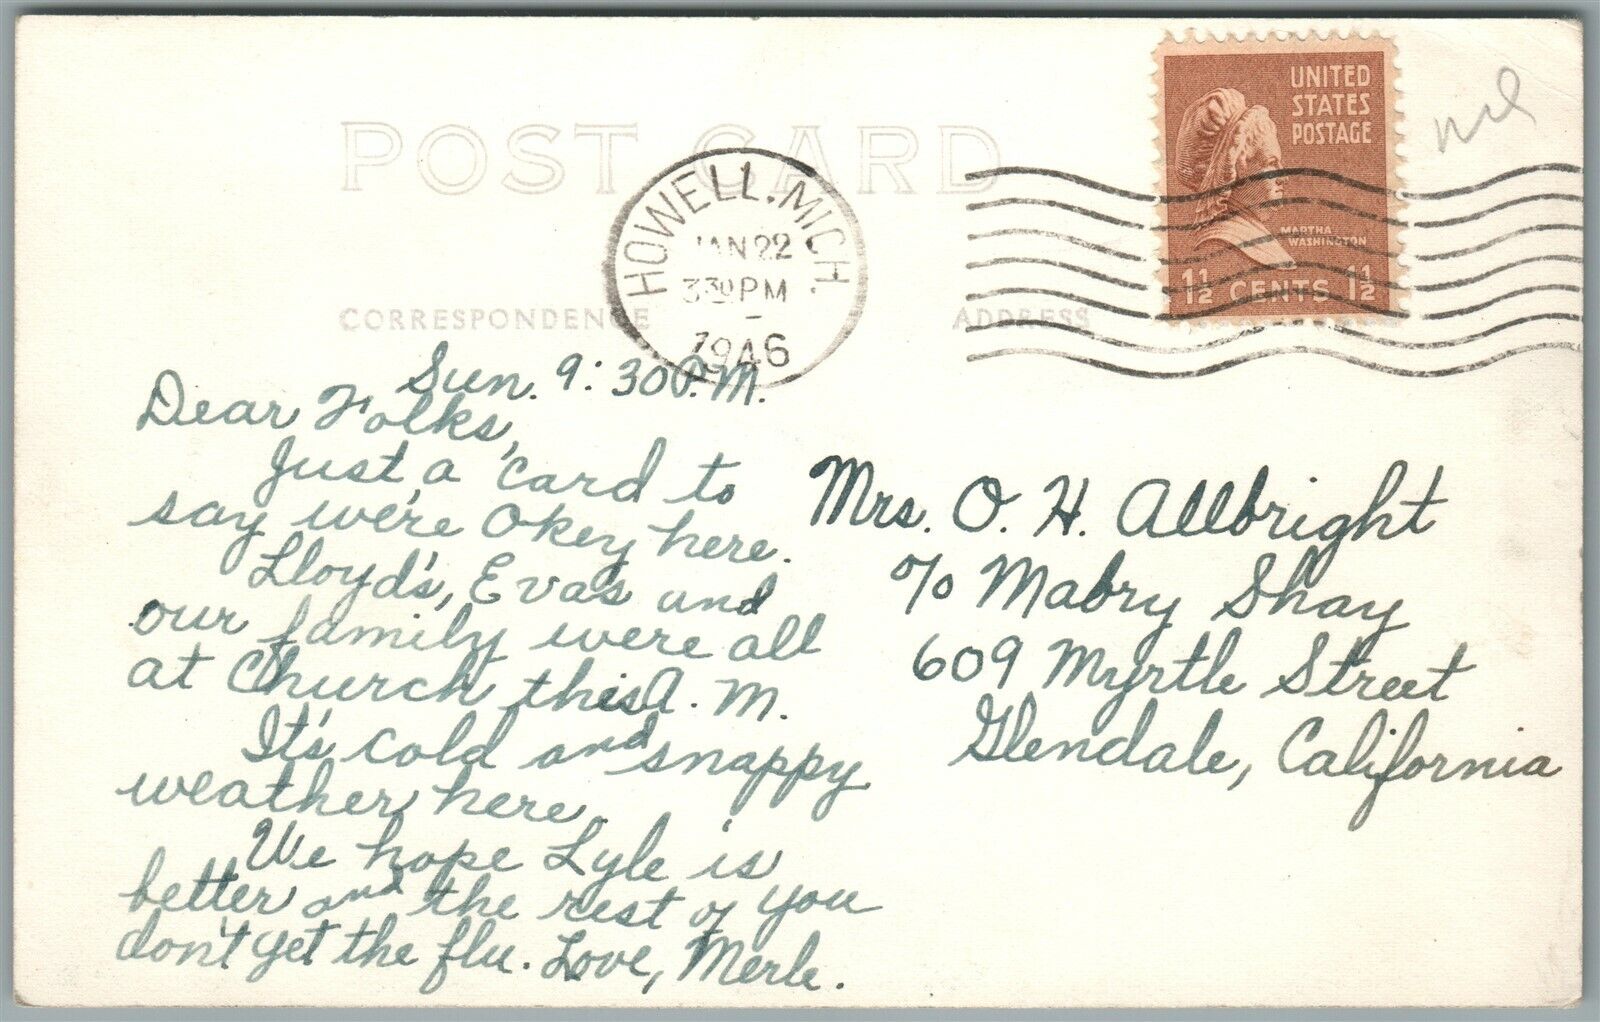 POST CARD
CORRESPONDENCE
ADDRESS
HOWELL, MICH.
JAN 22
330 PM
1946
UNITED
STATES
POSTAGE
MARTHA
WASHINGTON
1½ CENTS 1½
Sun. 9:30 P.M.
Dear Folks,
Just a card to
say we're Okey here.
Lloyd's, Eva's and
our family were all
at Church this A.M.
It's cold and snappy
weather here.
We hope Lyle is
better and the rest of you
don't get the flu. Love, Merle.
Mrs. O. H. Allbright
c/o Mabry Shay
609 Myrtle Street
Glendale, California